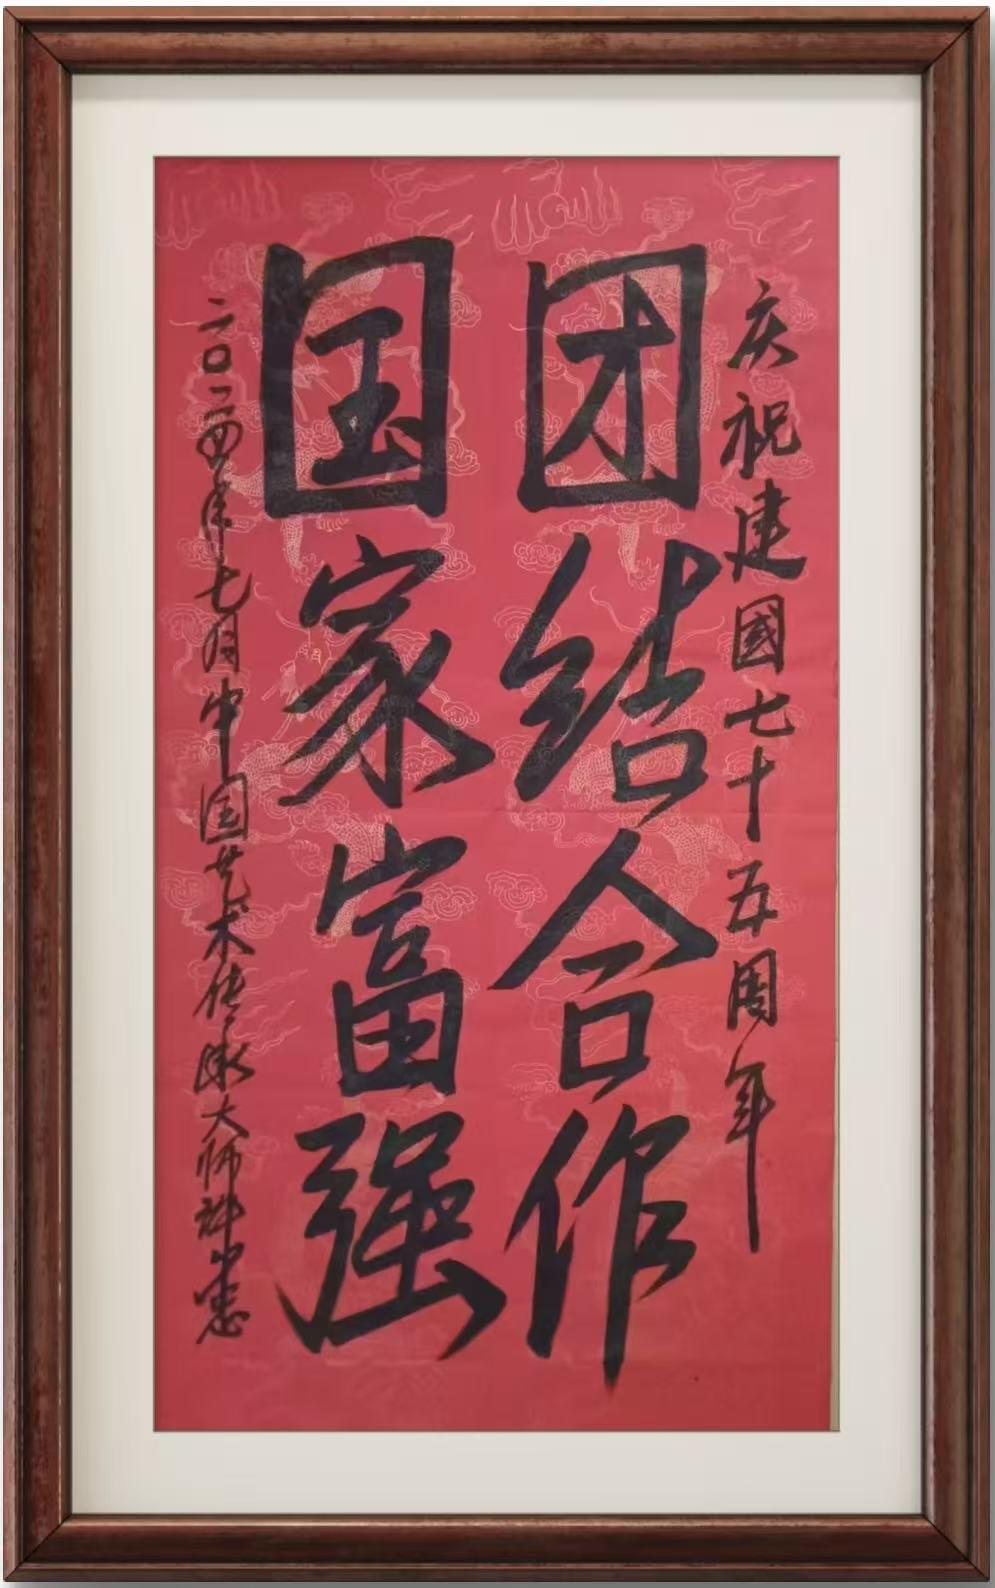 庆祝建國七十五周年
团结合作
国家富强
二〇二四年七月中国艺术传承大师許崇惠